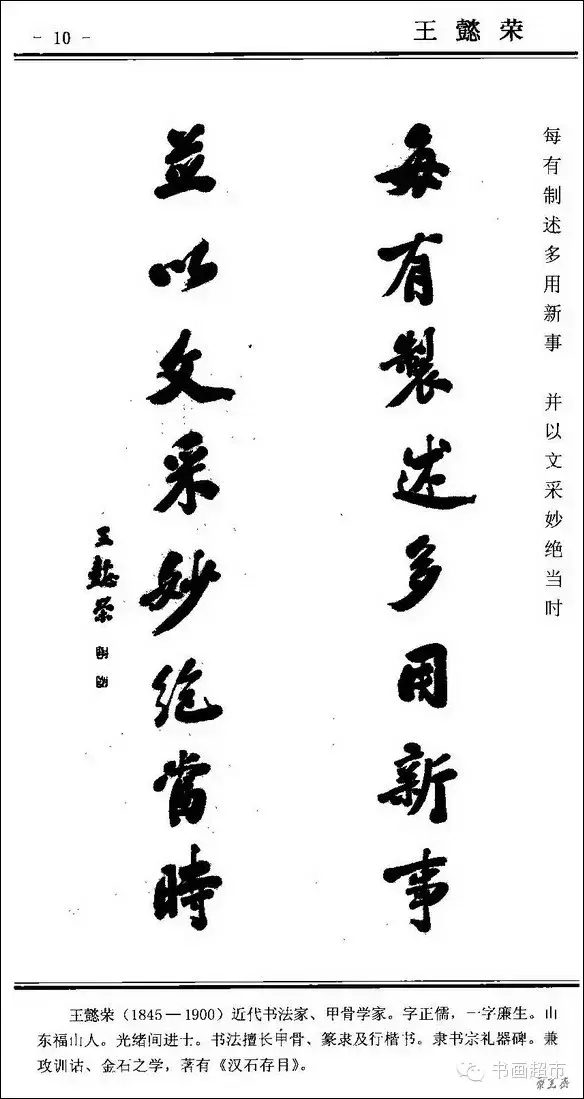 - 10 -
王懿荣
每有制述多用新事 并以文采妙绝当时
每有製述多用新事
並以文采妙絶當時
王懿榮
王懿荣（1845—1900）近代书法家、甲骨学家。字正儒，一字廉生。山
东福山人。光绪间进士。书法擅长甲骨、篆隶及行楷书。隶书宗礼器碑。兼
攻训诂、金石之学，著有《汉石存目》。
书画超市